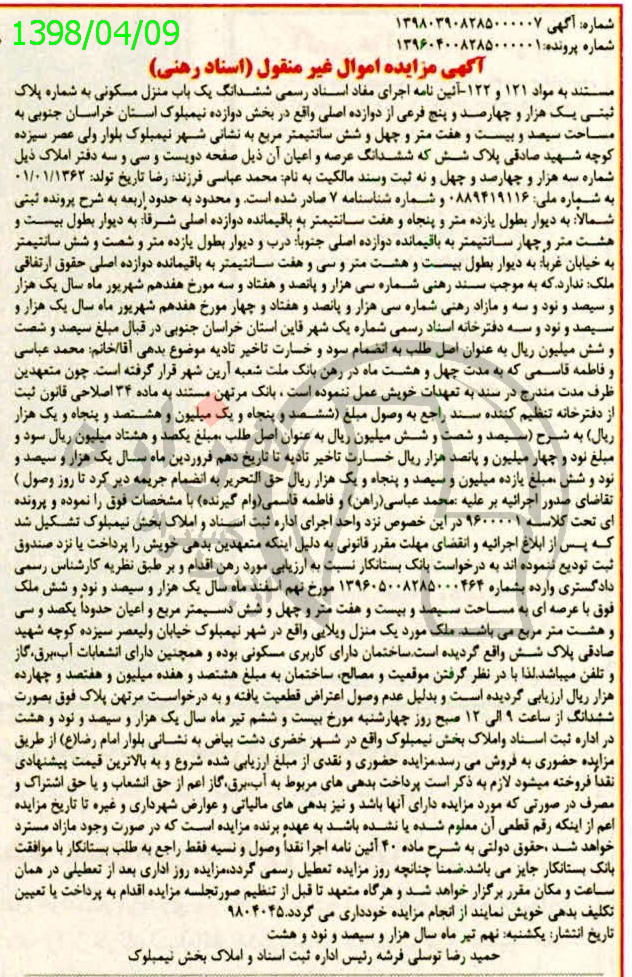 1398/04/09
شماره: آگهی ۱۳۹۸۰۳۹۰۸۲۸۵۰۰۰۰۰۷
شماره پرونده: ۱۳۹۶۰۴۰۰۸۲۸۵۰۰۰۰۰۱
آگهی مزایده اموال غیر منقول (اسناد رهنی)
مستند به مواد ۱۲۱ و ۱۲۲-آئین نامه اجرای مفاد اسناد رسمی ششدانگ یک باب منزل مسکونی به شماره پلاک
ثبتی یک هزار و چهارصد و پنج فرعی از دوازده اصلی واقع در بخش دوازده نیمبلوک استان خراسان جنوبی به
مساحت سیصد و بیست و هفت متر و چهل و شش سانتیمتر مربع به نشانی شهر نیمبلوک بلوار ولی عصر سیزده
کوچه شهید صادقی پلاک شش که ششدانگ عرصه و اعیان آن ذیل صفحه دویست و سی و سه دفتر املاک ذیل
شماره سه هزار و چهارصد و چهل و نه ثبت وسند مالکیت به نام: محمد عباسی فرزند: رضا تاریخ تولد: ۰۱/۰۱/۱۳۶۲
به شماره ملی: ۰۸۸۹۴۱۹۱۱۶ و شماره شناسنامه ۷ صادر شده است. و محدود به حدود اربعه به شرح پرونده ثبتی
شمالاً: به دیوار بطول یازده متر و پنجاه و هفت سانتیمتر به باقیمانده دوازده اصلی شرقاً: به دیوار بطول بیست و
هشت متر و چهار سانتیمتر به باقیمانده دوازده اصلی جنوباً: درب و دیوار بطول یازده متر و شصت و شش سانتیمتر
به خیابان غرباً: به دیوار بطول بیست و هشت متر و سی و هفت سانتیمتر به باقیمانده دوازده اصلی حقوق ارتفاقی
ملک: ندارد.که به موجب سند رهنی شماره سی هزار و پانصد و هفتاد و سه مورخ هفدهم شهریور ماه سال یک هزار
و سیصد و نود و سه و مازاد رهنی شماره سی هزار و پانصد و هفتاد و چهار مورخ هفدهم شهریور ماه سال یک هزار و
سیصد و نود و سه دفترخانه اسناد رسمی شماره یک شهر قاین استان خراسان جنوبی در قبال مبلغ سیصد و شصت
و شش میلیون ریال به عنوان اصل طلب به انضمام سود و خسارت تاخیر تادیه موضوع بدهی آقا/خانم: محمد عباسی
و فاطمه قاسمی که به مدت چهل و هشت ماه در رهن بانک ملت شعبه آرین شهر قرار گرفته است. چون متعهدین
ظرف مدت مندرج در سند به تعهدات خویش عمل ننموده است ، بانک مرتهن مستند به ماده ۳۴ اصلاحی قانون ثبت
از دفترخانه تنظیم کننده سند راجع به وصول مبلغ (ششصد و پنجاه و یک میلیون و هشتصد و پنجاه و یک هزار
ریال) به شرح (سیصد و شصت و شش میلیون ریال به عنوان اصل طلب ،مبلغ یکصد و هشتاد میلیون ریال سود و
مبلغ نود و چهار میلیون و پانصد هزار ریال خسارت تاخیر تادیه تا تاریخ دهم فروردین ماه سال یک هزار و سیصد و
نود و شش ،مبلغ یازده میلیون و سیصد و پنجاه و یک هزار ریال حق التحریر به انضمام جریمه دیر کرد تا روز وصول )
تقاضای صدور اجرائیه بر علیه :محمد عباسی(راهن) و فاطمه قاسمی(وام گیرنده) با مشخصات فوق را نموده و پرونده
ای تحت کلاسه ۹۶۰۰۰۰۱ در این خصوص نزد واحد اجرای اداره ثبت اسناد و املاک بخش نیمبلوک تشکیل شد
که پس از ابلاغ اجرائیه و انقضای مهلت مقرر قانونی به دلیل اینکه متعهدین بدهی خویش را پرداخت یا نزد صندوق
ثبت تودیع ننموده اند به درخواست بانک بستانکار نسبت به ارزیابی مورد رهن اقدام و بر طبق نظریه کارشناس رسمی
دادگستری وارده بشماره ۱۳۹۶۰۵۰۰۸۲۸۵۰۰۰۴۶۴ مورخ نهم اسفند ماه سال یک هزار و سیصد و نود و شش ملک
فوق با عرصه ای به مساحت سیصد و بیست و هفت متر و چهل و شش دسیمتر مربع و اعیان حدوداً یکصد و سی
و هشت متر مربع می باشد. ملک مورد یک منزل ویلایی واقع در شهر نیمبلوک خیابان ولیعصر سیزده کوچه شهید
صادقی پلاک شش واقع گردیده است.ساختمان دارای کاربری مسکونی بوده و همچنین دارای انشعابات آب،برق،گاز
و تلفن میباشد.لذا با در نظر گرفتن موقعیت و مصالح، ساختمان به مبلغ هشتصد و هفده میلیون و هفتصد و چهارده
هزار ریال ارزیابی گردیده است و بدلیل عدم وصول اعتراض قطعیت یافته و به درخواست مرتهن پلاک فوق بصورت
ششدانگ از ساعت ۹ الی ۱۲ صبح روز چهارشنبه مورخ بیست و ششم تیر ماه سال یک هزار و سیصد و نود و هشت
در اداره ثبت اسناد واملاک بخش نیمبلوک واقع در شهر خضری دشت بیاض به نشانی بلوار امام رضا(ع) از طریق
مزایده حضوری به فروش می رسد.مزایده حضوری و نقدی از مبلغ ارزیابی شده شروع و به بالاترین قیمت پیشنهادی
نقداً فروخته میشود لازم به ذکر است پرداخت بدهی های مربوط به آب،برق،گاز اعم از حق انشعاب و یا حق اشتراک و
مصرف در صورتی که مورد مزایده دارای آنها باشد و نیز بدهی های مالیاتی و عوارض شهرداری و غیره تا تاریخ مزایده
اعم از اینکه رقم قطعی آن معلوم شده یا نشده باشد به عهده برنده مزایده است که در صورت وجود مازاد مسترد
خواهد شد ،حقوق دولتی به شرح ماده ۴۰ آئین نامه اجرا نقداً وصول و نسیه فقط راجع به طلب بستانکار با موافقت
بانک بستانکار جایز می باشد.ضمناً چنانچه روز مزایده تعطیل رسمی گردد،مزایده روز اداری بعد از تعطیلی در همان
ساعت و مکان مقرر برگزار خواهد شد و هرگاه متعهد تا قبل از تنظیم صورتجلسه مزایده اقدام به پرداخت یا تعیین
تکلیف بدهی خویش نمایند از انجام مزایده خودداری می گردد.۹۸۰۴۰۴۵
تاریخ انتشار: یکشنبه: نهم تیر ماه سال هزار و سیصد و نود و هشت
حمید رضا توسلی فرشه رئیس اداره ثبت اسناد و املاک بخش نیمبلوک